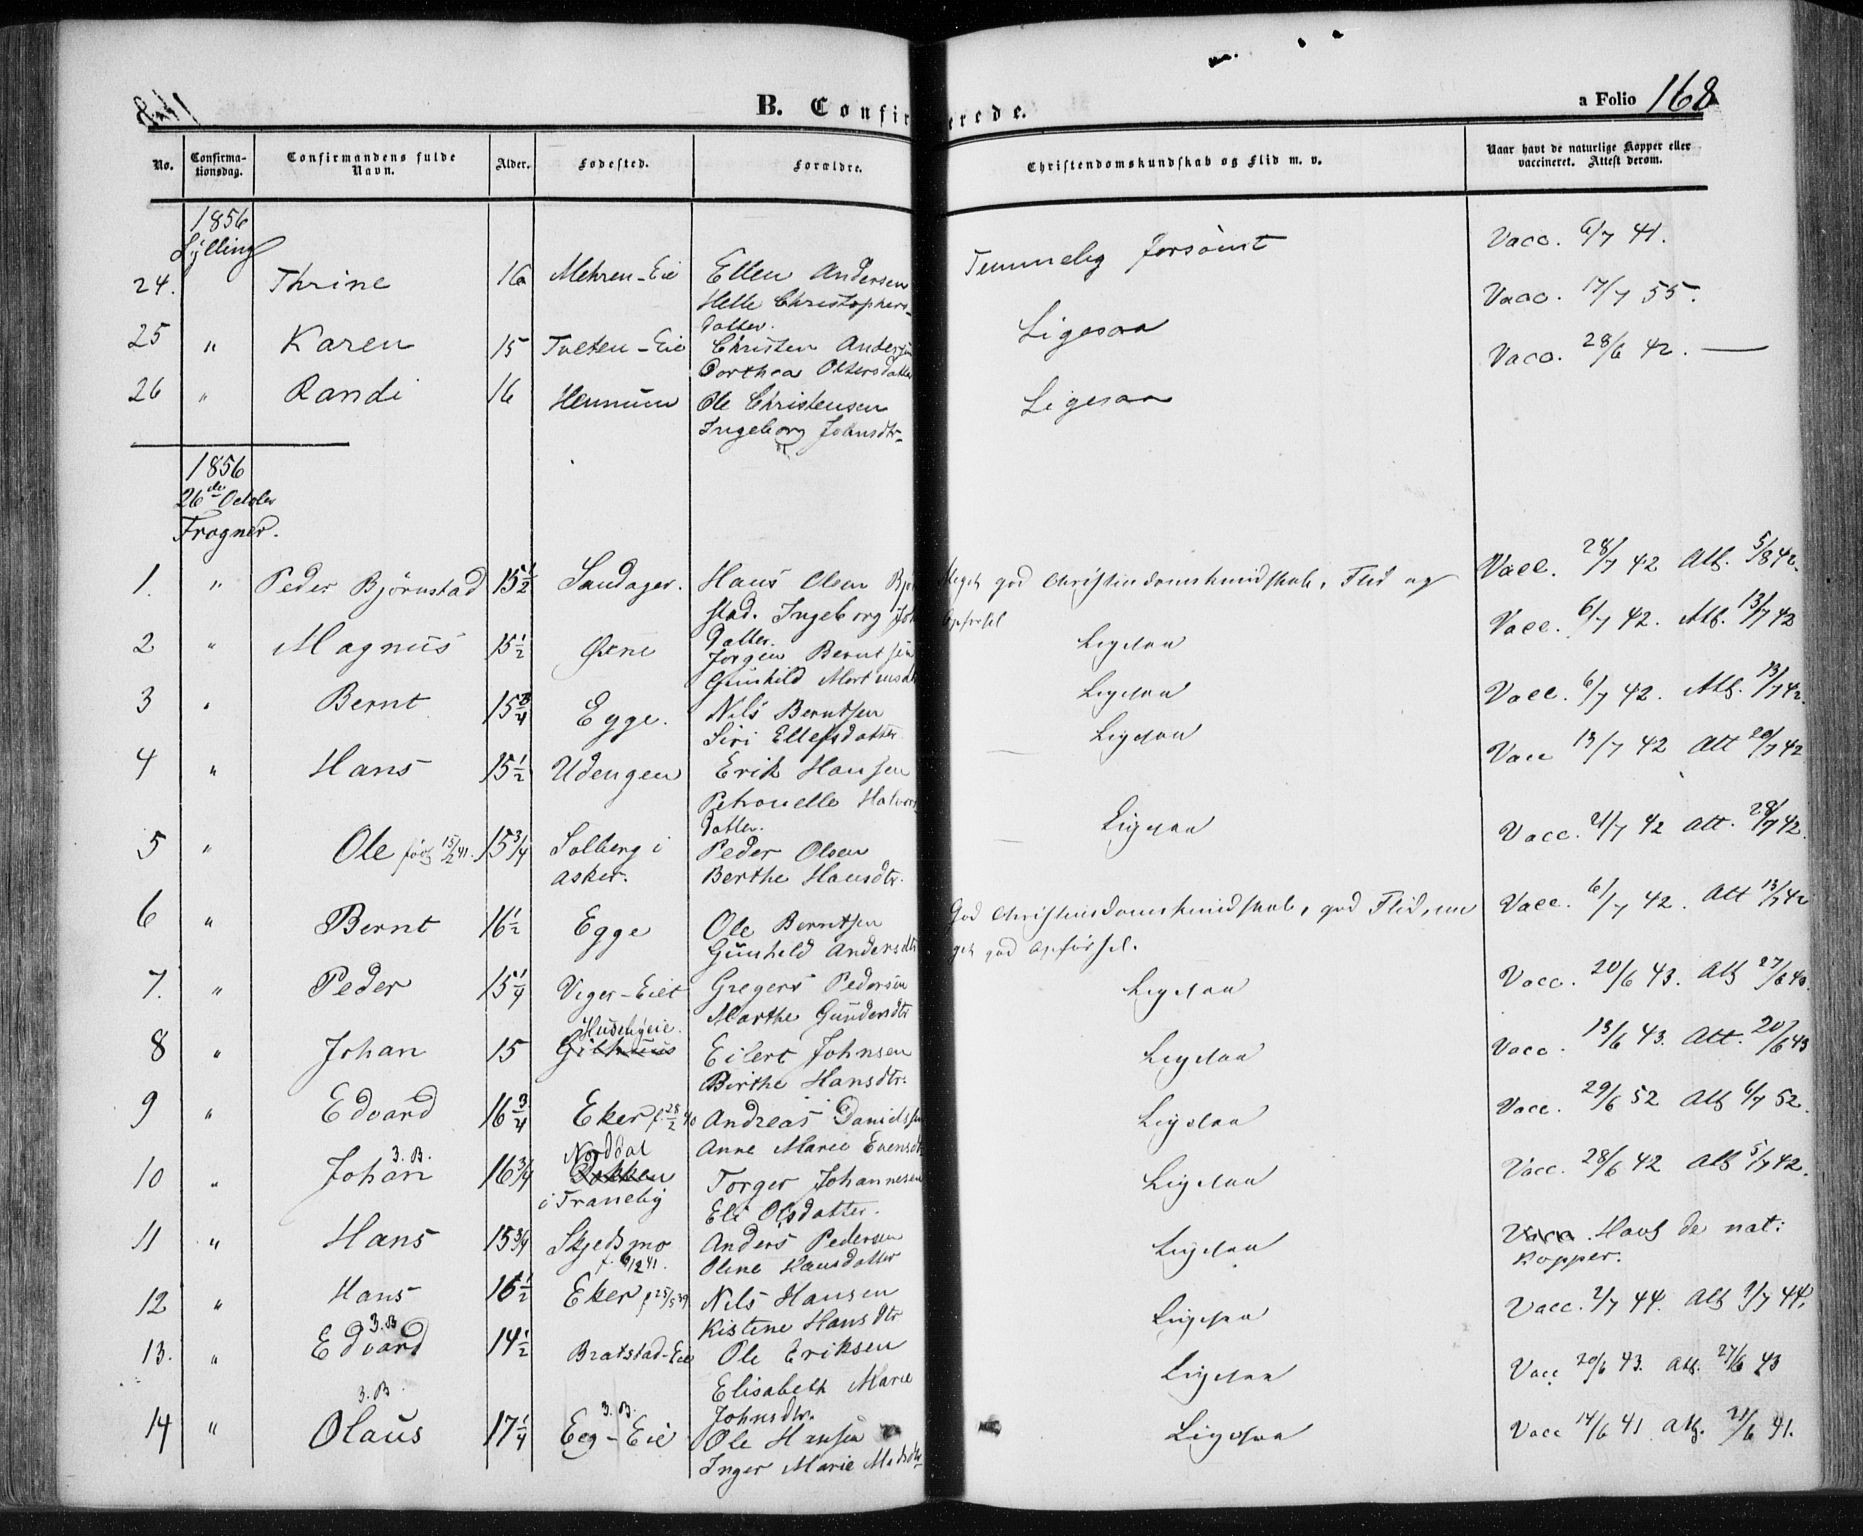 B. Confirmerede.
a Folio 168
No. Confirmationsdag. Confirmandens fulde Navn. Alder. Fødested. Forældre. Christendomskundskab og Flid m. v. Naar havt de naturlige Kopper eller vaccineret. Attest derom.
1856
Sylling
24. Thrine 16 Mehren-Eie Ellen Andersen Temmelig forsømt Vacc. 6/7 41.
Helle Christophers-
datter.
25 " Karen 15 Tveten-Eie Christen Andersen Ligesaa Vacc. 17/7 55.
Dorthea Oltersdatter
26 " Randi 16 Hennum Ole Christensen Ligesaa Vacc. 28/6 42. —
Ingeborg Johnsdtr
1856
26de October
Frogner.
1. " Peder Björnstad 15 1/2 Sandager. Hans Olsen Meget god Christendomskundskab, Flid og Vacc. 28/7 42 Att. 5/8 42.
stad. Ingeborg Opførsel
datter.
2 " Magnus 15 1/2 Øvne Jørgen Berntsen Ligesaa Vacc. 6/7 42. Att. 13/7 42
Gunhild Mortensdtr
3 " Bernt 15 3/4 Egge. Nils Berntsen Ligesaa Vacc. 6/7 42. Att. 13/7 42.
Siri Ellefsdatter
4 " Hans 15 1/2 Udengen Erik Hansen Ligesaa Vacc 13/7 42 Att 20/7 42
Petronelle Halvors
datter.
5 " Ole født 15/2 41. 15 3/4 Solberg i Peder Olsen Ligesaa Vacc. 21/7 42 Att. 28/7 42.
Asker. Berthe Hansdtr.
6 " Bernt 16 1/2 Egge Ole Berntsen God Christendomskundskab, god Flid, me Vacc. 6/7 42. Att 13/7 42
Gunhild Andersdtr get god Opførsel.
7. " Peder 15 1/4 Viger-Eiet Gregers Pedersen Ligesaa Vacc. 20/6 43. Att 27/6 43.
Marthe Gundersdtr
Husebyeie.
8 " Johan 15 Gilhuus Eilert Johnsen Ligesaa Vacc. 13/6 43. Att. 20/6 43
Birthe Hansdtr.
9 " Edvard 16 3/4 Eker f. 28/2 40 Andreas Danielsen Ligesaa Vacc. 29/6 52 Att 6/7 52.
Anne Marie Evensdtr
3. B. Norddal
10 " Johan 16 3/4 Bokken Torger Johannesen Ligesaa Vacc. 28/6 42 Att 5/7 42.
i Traneby Eli Olsdatter.
11 " Hans 15 3/4 Skjedsmo Anders Pedersen Ligesaa Vacc. Havt de nat:
Oline Hansdatter Kopper.
12 " Hans 16 1/2 Eker f 25/5 39 Nils Hansen Ligesaa Vacc. 2/7 44. Att 9/7 44.
Kistine Hansdtr
3. B
13. " Edvard 14 1/2 Bratstad-Eie Ole Eriksen Ligesaa Vacc 20/6 43. Att. 27/6 43
Elisabeth Marie
Johnsdtr.
3. B. 3. B.
14 " Olaus 17 1/4 Eeg-Eie Ole Hansen Ligesaa Vacc 14/6 41. Att. 21/6 41.
Inger Marie Madsdtr